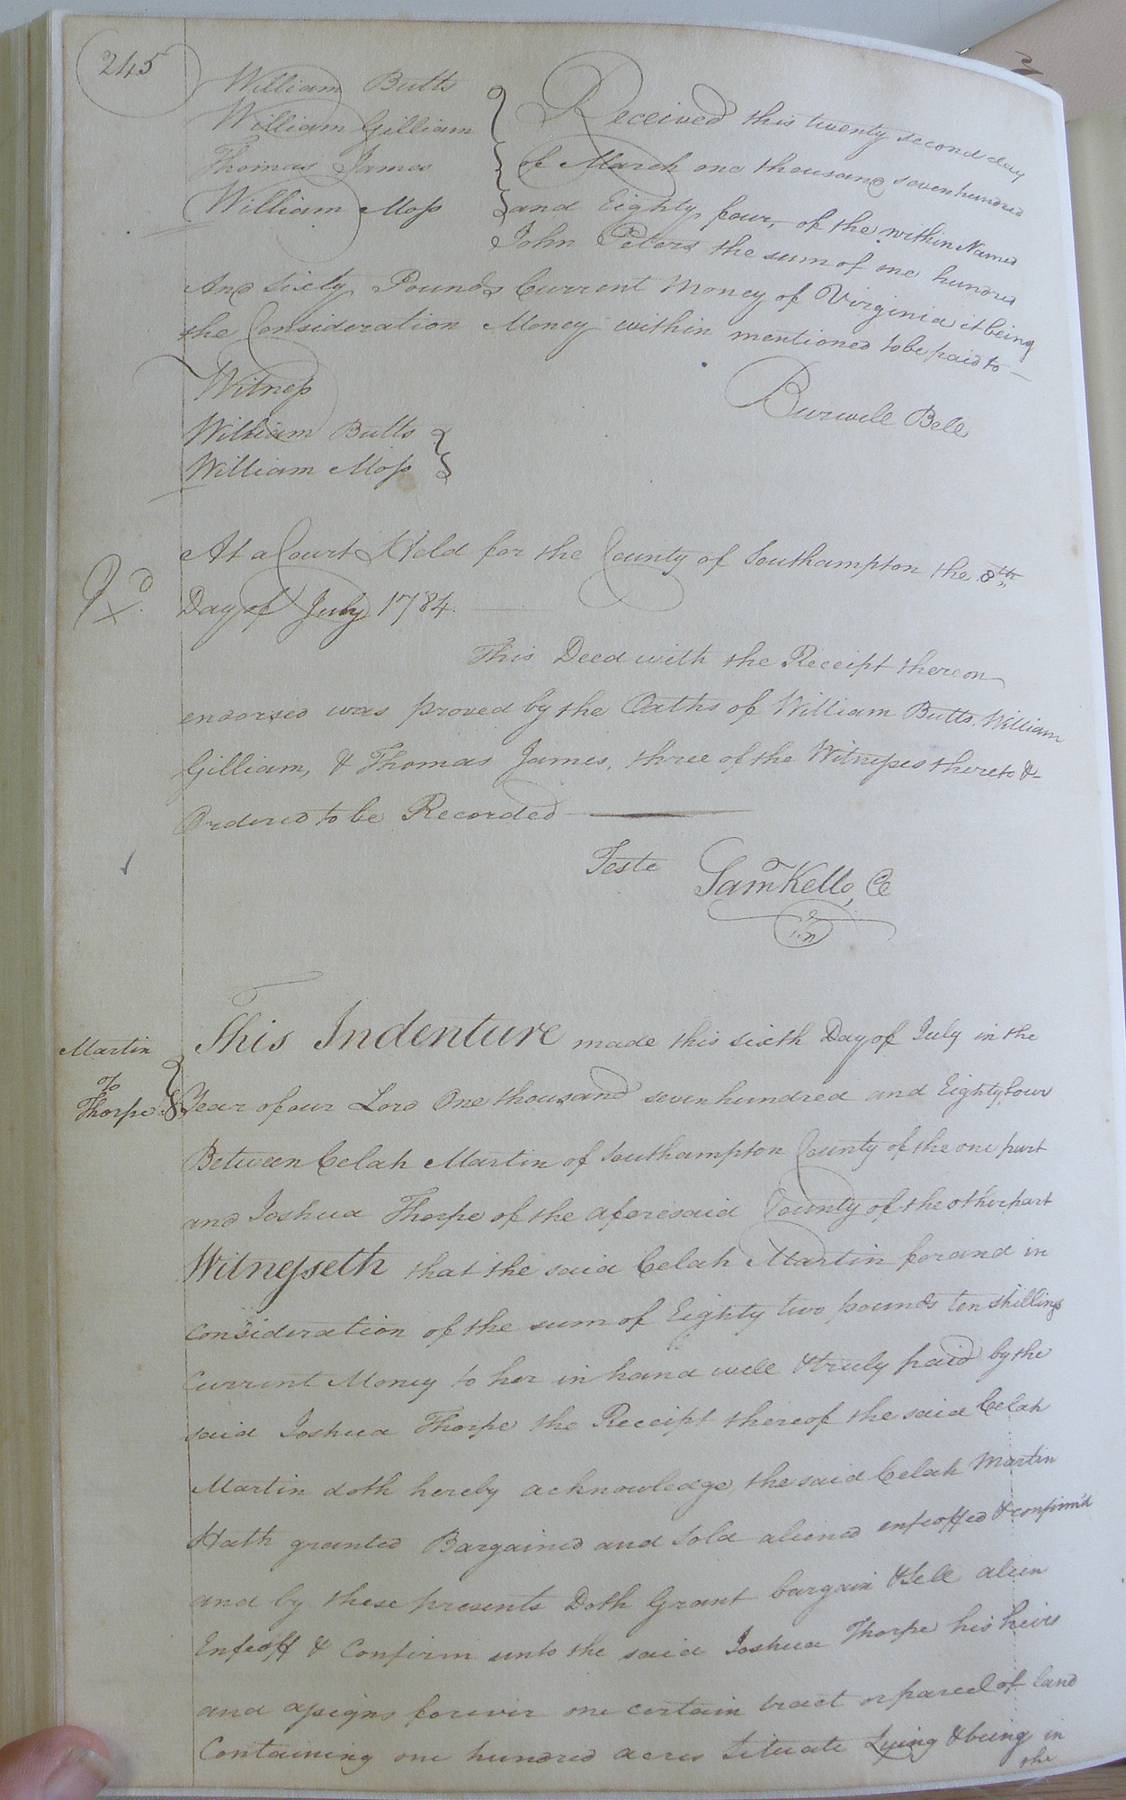 245
William Butts
William Gilliam
Thomas James
William Moss
Received this twenty second day
of March one thousand seven hundred
and Eighty four, of the within Named
John Peters the sum of one hundred
And sixty Pounds Current Money of Virginia it being
the Consideration Money within mentioned to be paid to —
Burwell Bell
Witness
William Butts
William Moss
At a Court Held for the County of Southampton the 8th
Day of July 1784.
This Deed with the Receipt thereon
endorsed was proved by the Oaths of William Butts. William
Gilliam, & Thomas James, three of the Witnesses thereto &
Ordered to be Recorded
Teste Samo Kello, Ce
Martin
to
Thorpe
This Indenture made this sixth Day of July in the
Year of our Lord One thousand seven hundred and Eighty four
Between Celah Martin of Southampton County of the one part
and Joshua Thorpe of the aforesaid County of the other part
Witnesseth that the said Celah Martin for and in
consideration of the sum of Eighty two pounds ten shillings
Current Money to her in hand well & truly paid by the
said Joshua Thorpe the Receipt thereof the said Celah
Martin doth hereby acknowledge, the said Celah Martin
Hath granted Bargained and Sold aliened enfeoffed & confirm'd
and by these presents Doth Grant bargain & Sell alien
Enfeoff & Confirm unto the said Joshua Thorpe his heirs
and assigns forever one certain tract or parcel of land
Containing one hundred acres Situate Lying & being in
the